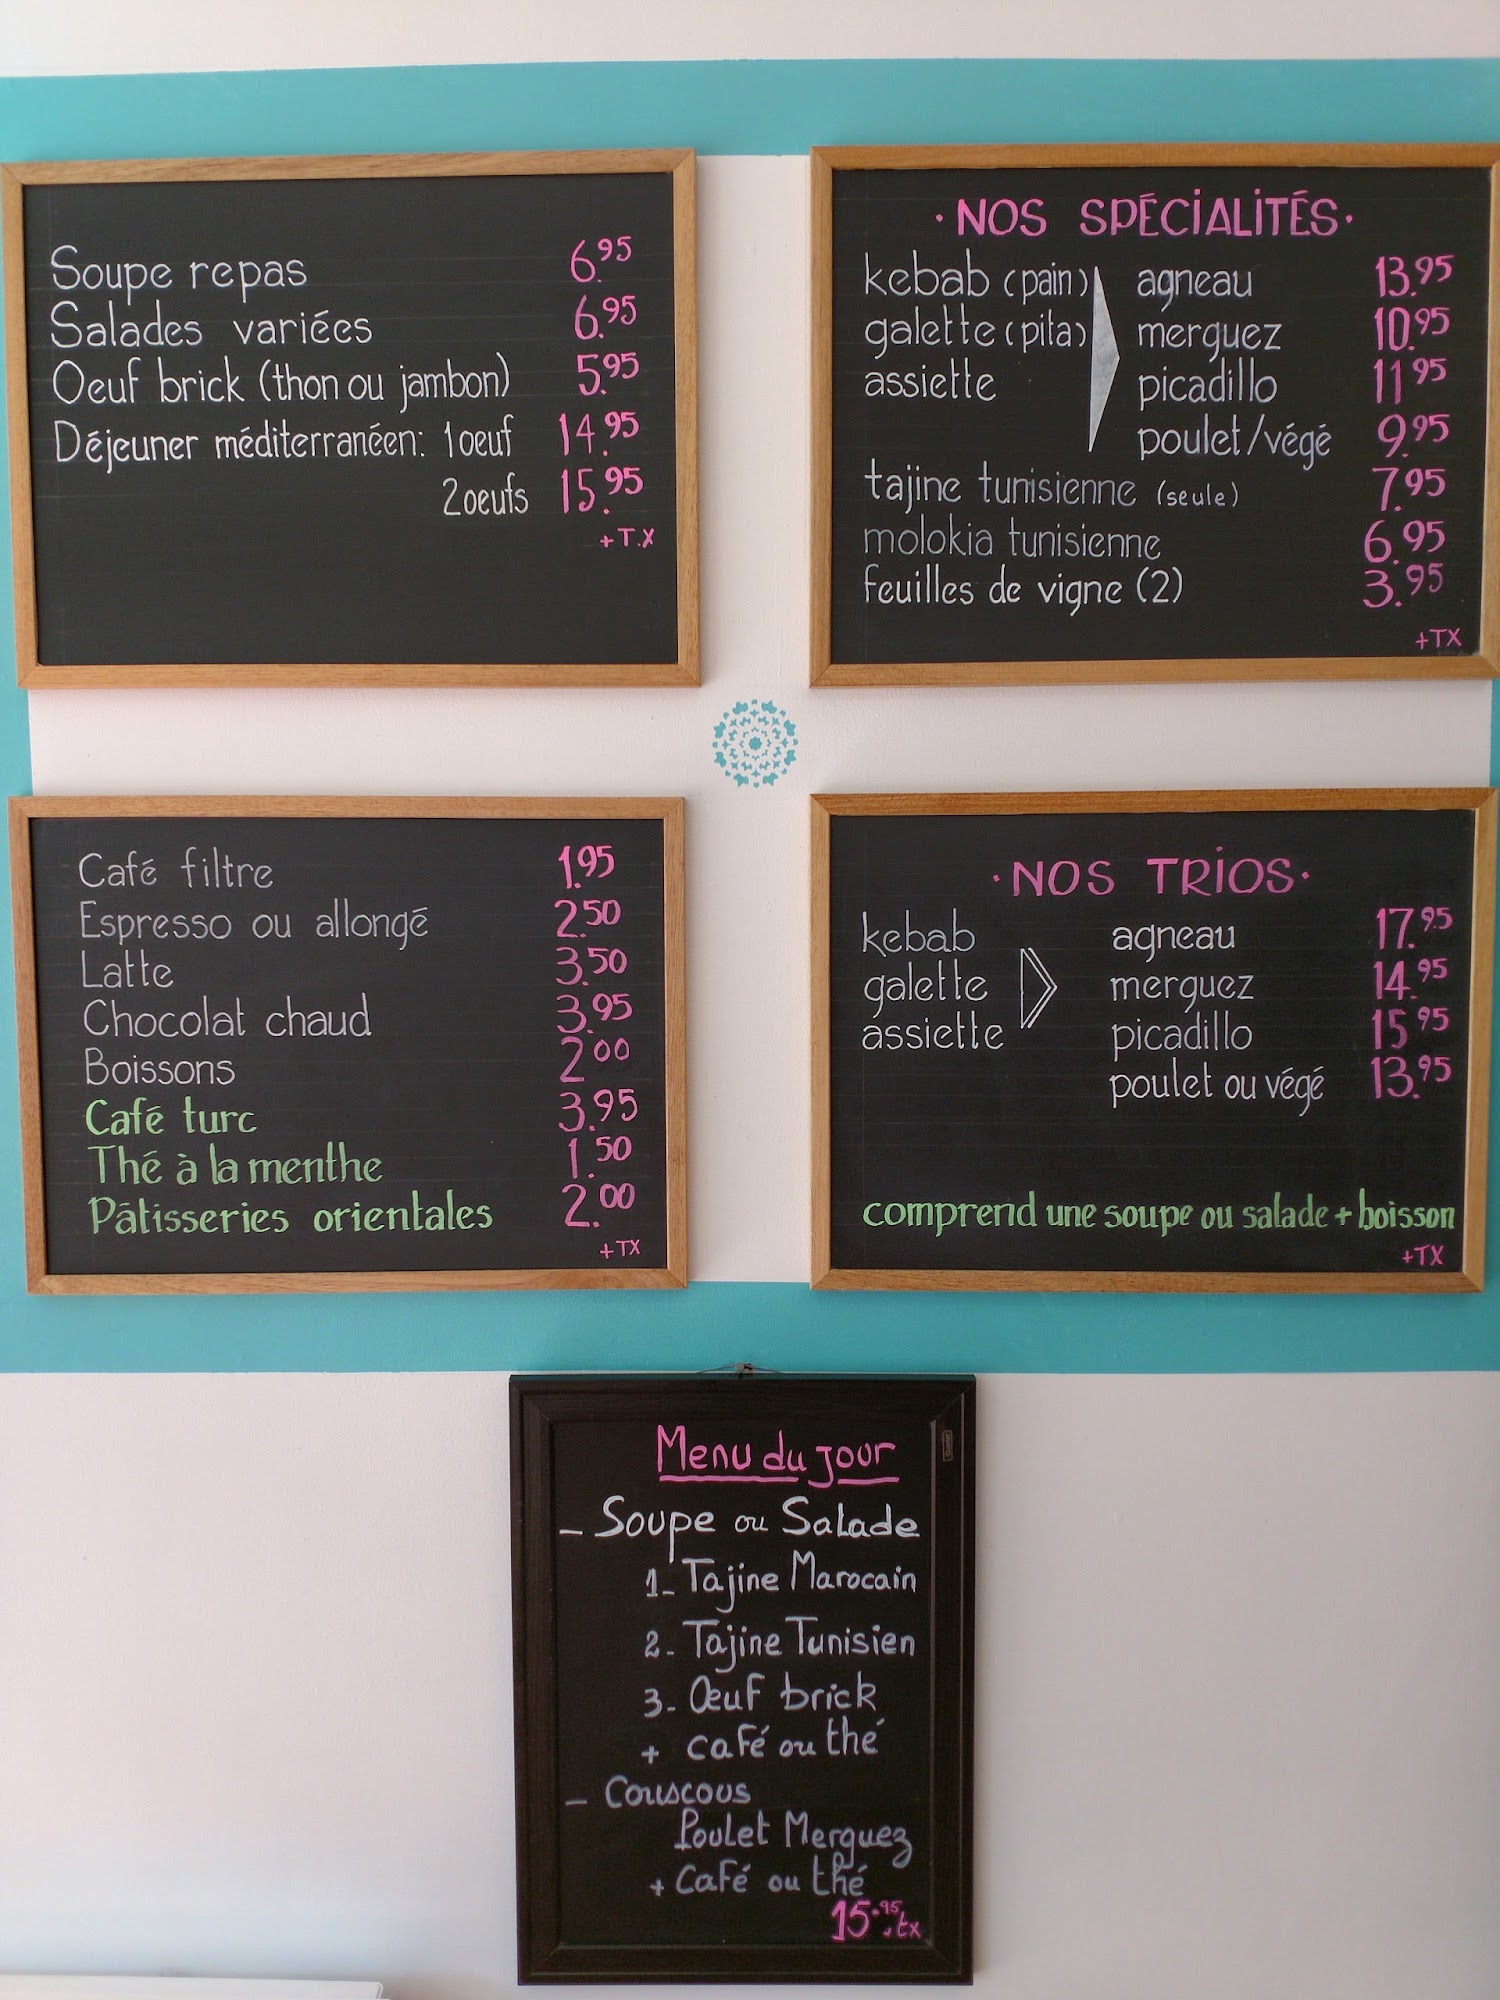 Soupe repas 6.95
Salades variées 6.95
Oeuf brick (thon ou jambon) 5.95
Déjeuner méditerranéen: 1 oeuf 14.95
2 oeufs 15.95
+T.X
· NOS SPÉCIALITÉS ·
kebab (pain) agneau 13.95
galette (pita) merguez 10.95
assiette picadillo 11.95
poulet/végé 9.95
tajine tunisienne (seule) 7.95
molokia tunisienne 6.95
feuilles de vigne (2) 3.95
+TX
Café filtre 1.95
Espresso ou allongé 2.50
Latte 3.50
Chocolat chaud 3.95
Boissons 2.00
Café turc 3.95
Thé à la menthe 1.50
Pâtisseries orientales 2.00
+TX
· NOS TRIOS ·
kebab agneau 17.95
galette merguez 14.95
assiette picadillo 15.95
poulet ou végé 13.95
comprend une soupe ou salade + boisson
+TX
Menu du jour
- Soupe ou Salade
1- Tajine Marocain
2- Tajine Tunisien
3- Œuf brick
+ café ou thé
- Couscous
Poulet Merguez
+ Café ou thé
15.95+tx